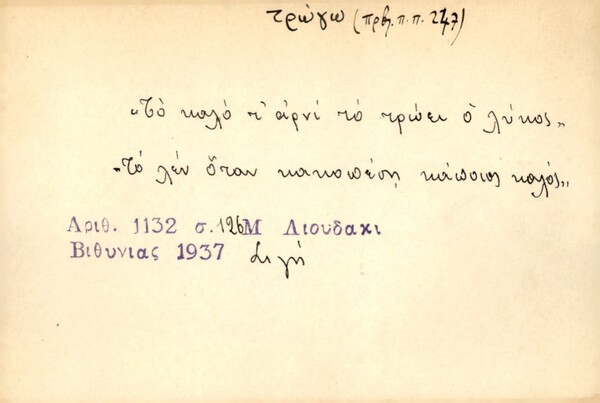 τρώγω (πρβ. π.π. 247)
«Τὸ καλό τ' ἀρνί τό τρώει ὁ λύκος»
«Τό λέν ὅταν κακοπέση κάποιος καλός»
Αριθ. 1132 σ. 126 Μ Λιουδακι
Βιθυνιας 1937 Σιγή